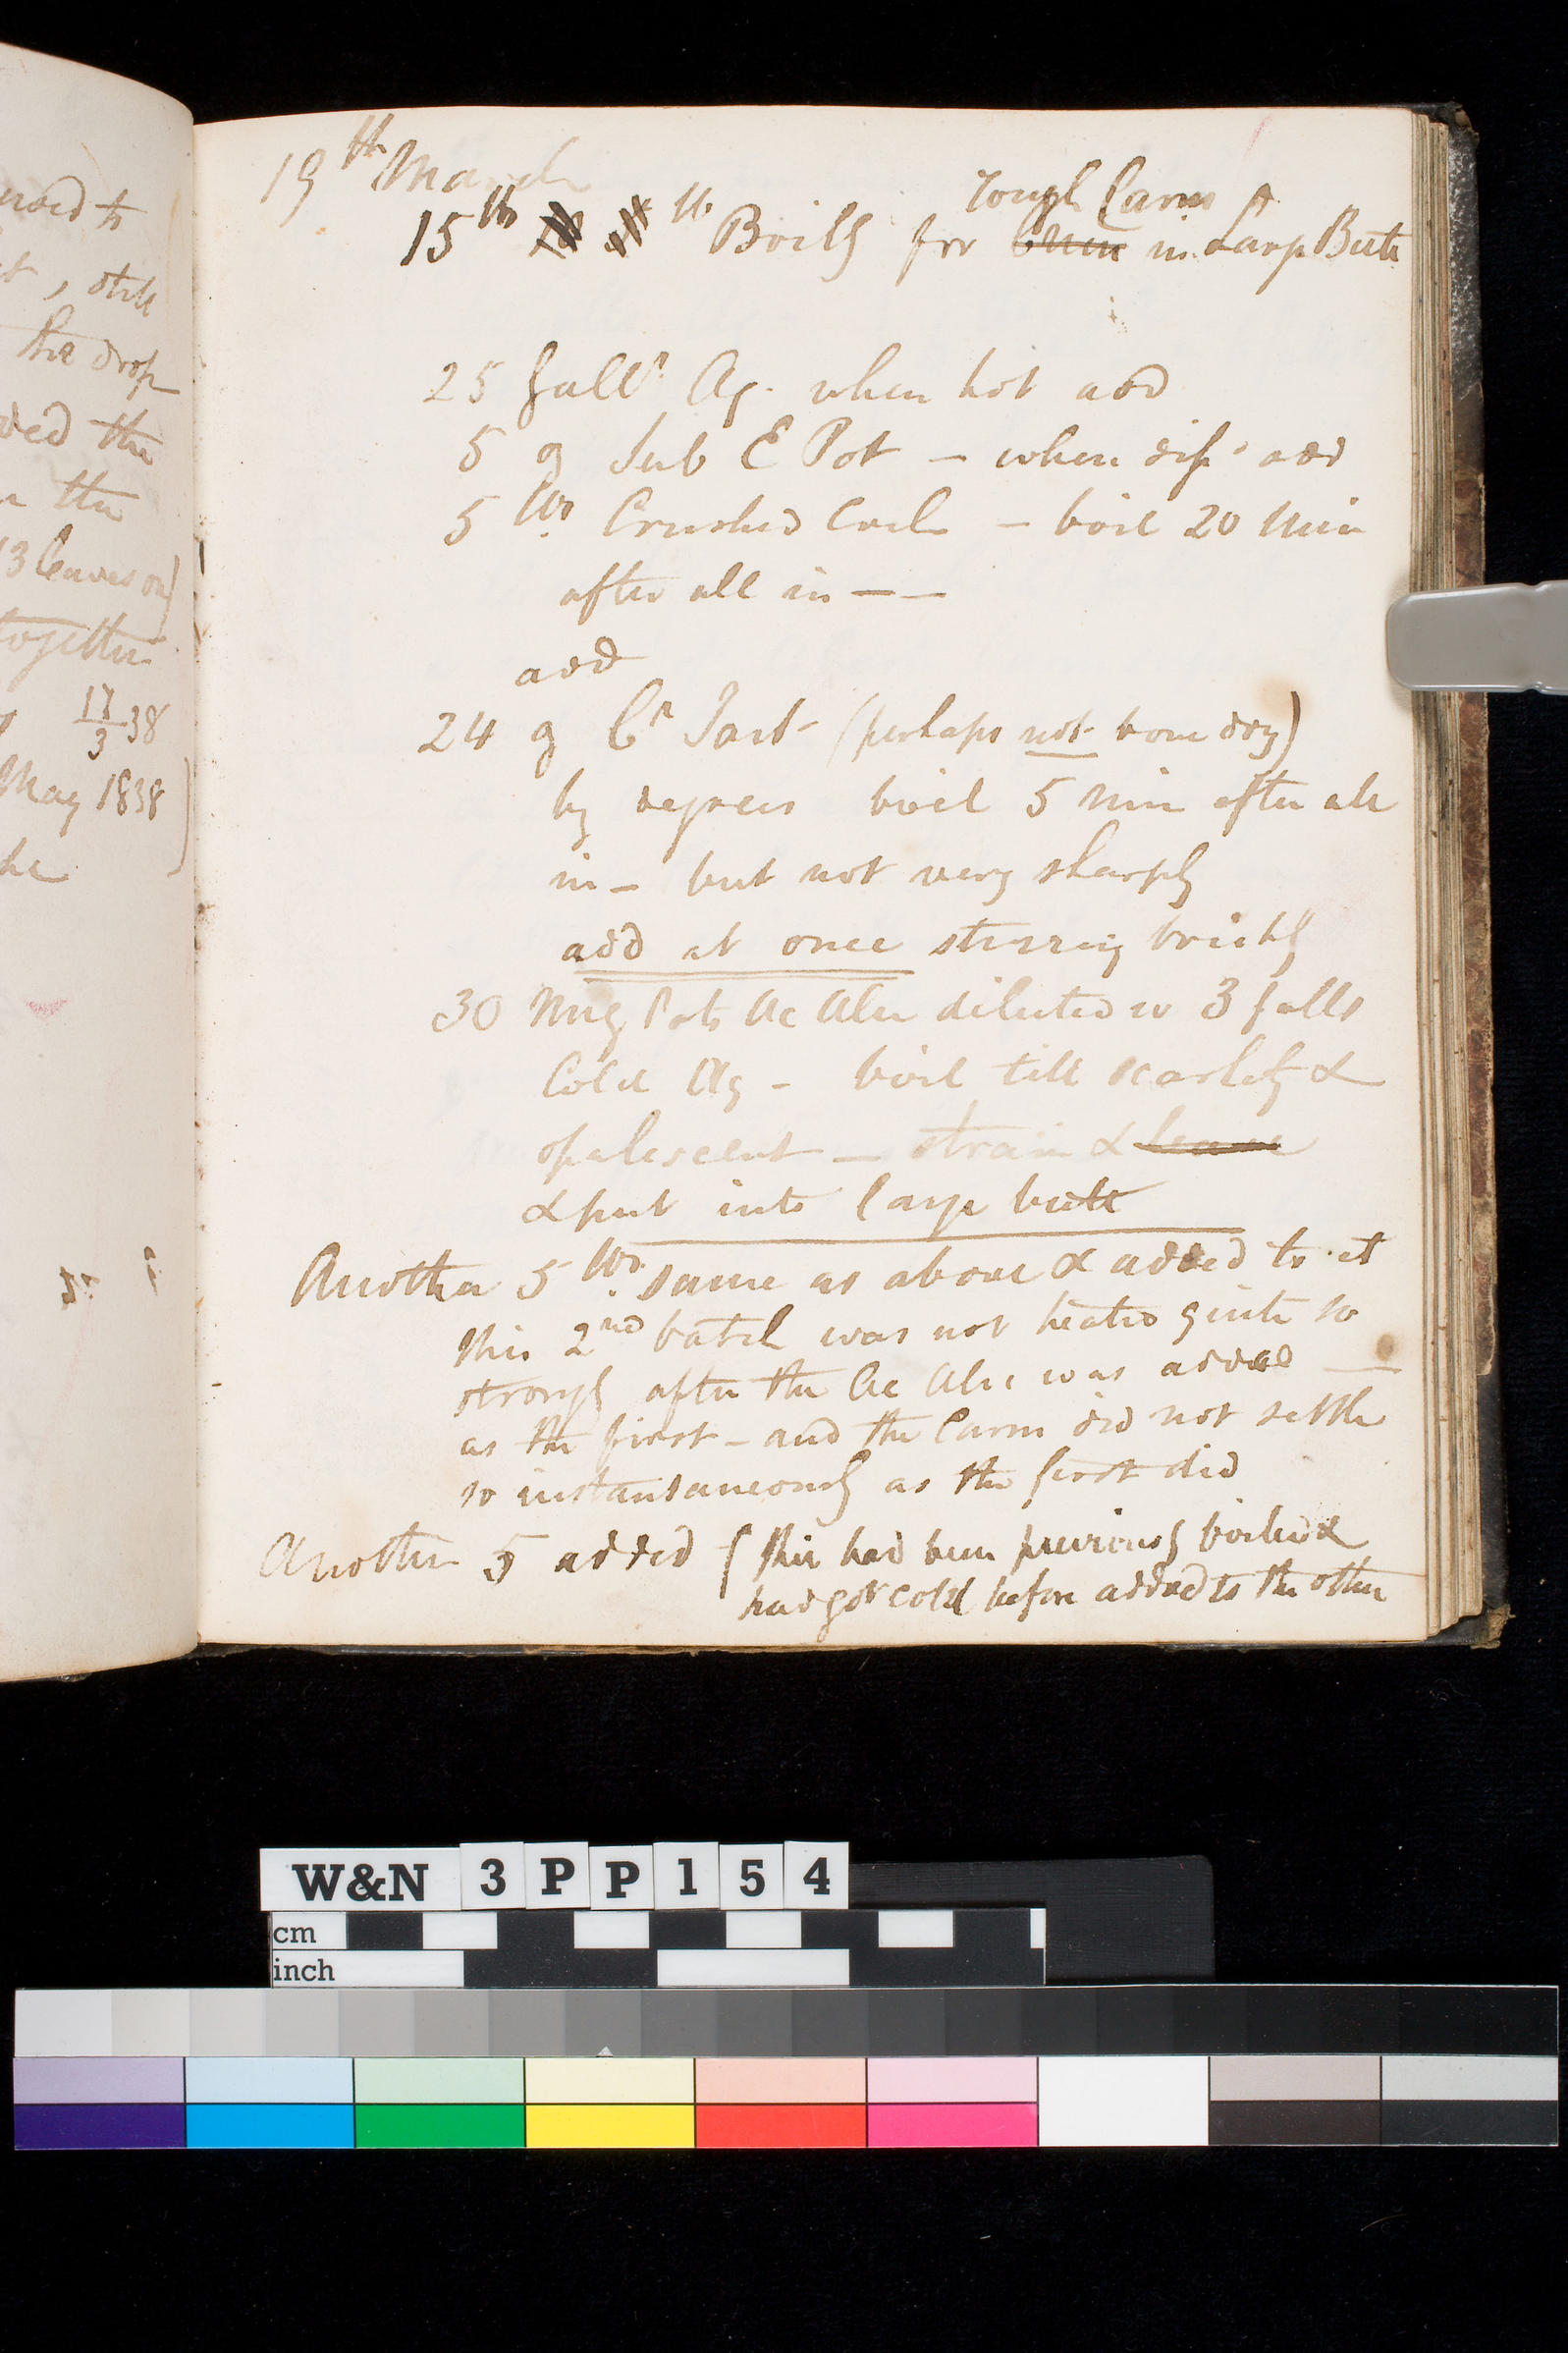 uced to
, still
the drop
ded the
the
13 leaves on)
together
17/3 38
May 1838
he
19th March
Tough Carm
15 lbs lb Boily for in Large Butt
25 Galls Aq. when hot add
5 oz Sub C Pot – when diss. add
5 lbs Crushed Coch – boil 20 Min
after all in – –
add
24 oz Cr Tart (perhaps not bone dry)
by degrees boil 5 Min after all
in – but not very sharply
add at once stirring briskly
30 Mug Pots Ac Alu diluted w 3 galls
Cold Aq – boil till scarlety &
opalescent – strain & leave
& put into large butt
Another 5 lbs same as above & added to it
this 2nd batch was not heated quite so
strongly after the Ac Alu was added –
as the first – and the Carm did not settle
so instantaneously as the first did
Another 5 added { this had been previously boiled &
had got cold before added to the other
W&N 3PP154
cm
inch